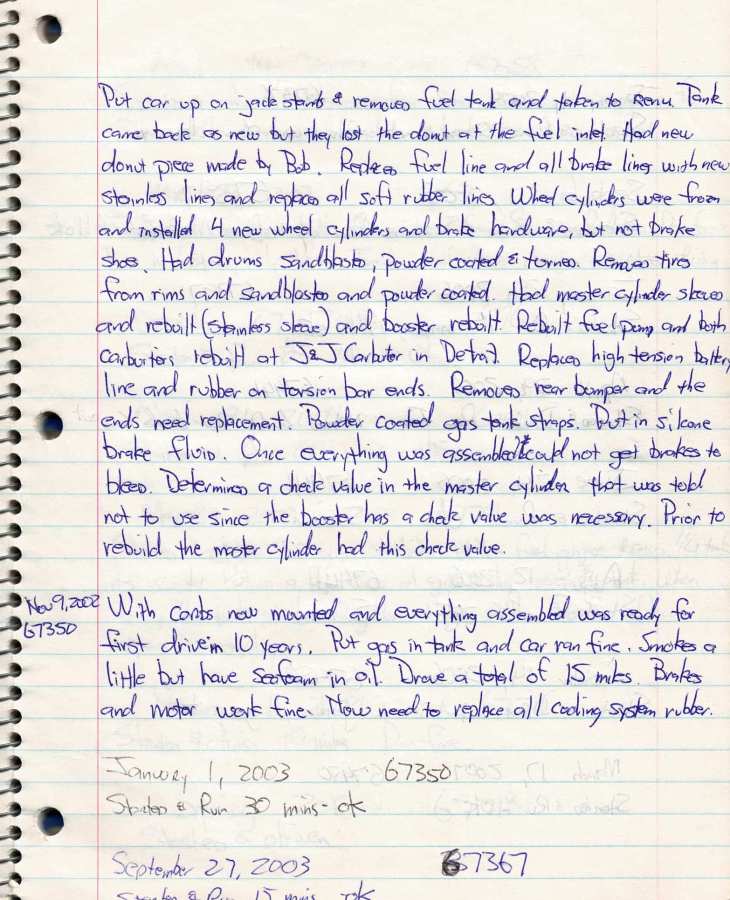 Put car up on jack stands & removed fuel tank and taken to Renu. Tank
came back as new but they lost the donut at the fuel inlet. Had new
donut piece made by Bob. Replaced fuel line and all brake lines with new
stainless lines and replaced all soft rubber lines. Wheel cylinders were frozen
and installed 4 new wheel cylinders and brake hardware, but not brake
shoes. Had drums sandblasted, powder coated & turned. Removed tires
from rims and sandblasted and powder coated. Had master cylinder sleeved
and rebuilt (stainless sleeve) and booster rebuilt. Rebuilt fuel pump and both
carburtors rebuilt at J&J Carbutor in Detroit. Replaced high tension battery
line and rubber on torsion bar ends. Removed rear bumper and the
ends need replacement. Powder coated gas tank straps. Put in silicone
brake fluid. Once everything was assembled could not get brakes to
bleed. Determined a check valve in the master cylinder that was told
not to use since the booster has a check valve was necessary. Prior to
rebuild the master cylinder had this check valve.
Nov 9, 2002 With carbs now mounted and everything assembled was ready for
67350 first drive in 10 years. Put gas in tank and car ran fine. Smokes a
little but have Seafoam in oil. Drove a total of 15 miles. Brakes
and motor work fine. Now need to replace all cooling system rubber.
January 1, 2003 67350
Started & Run 30 mins - ok
September 27, 2003 67367
Started & Run 15 mins - ok